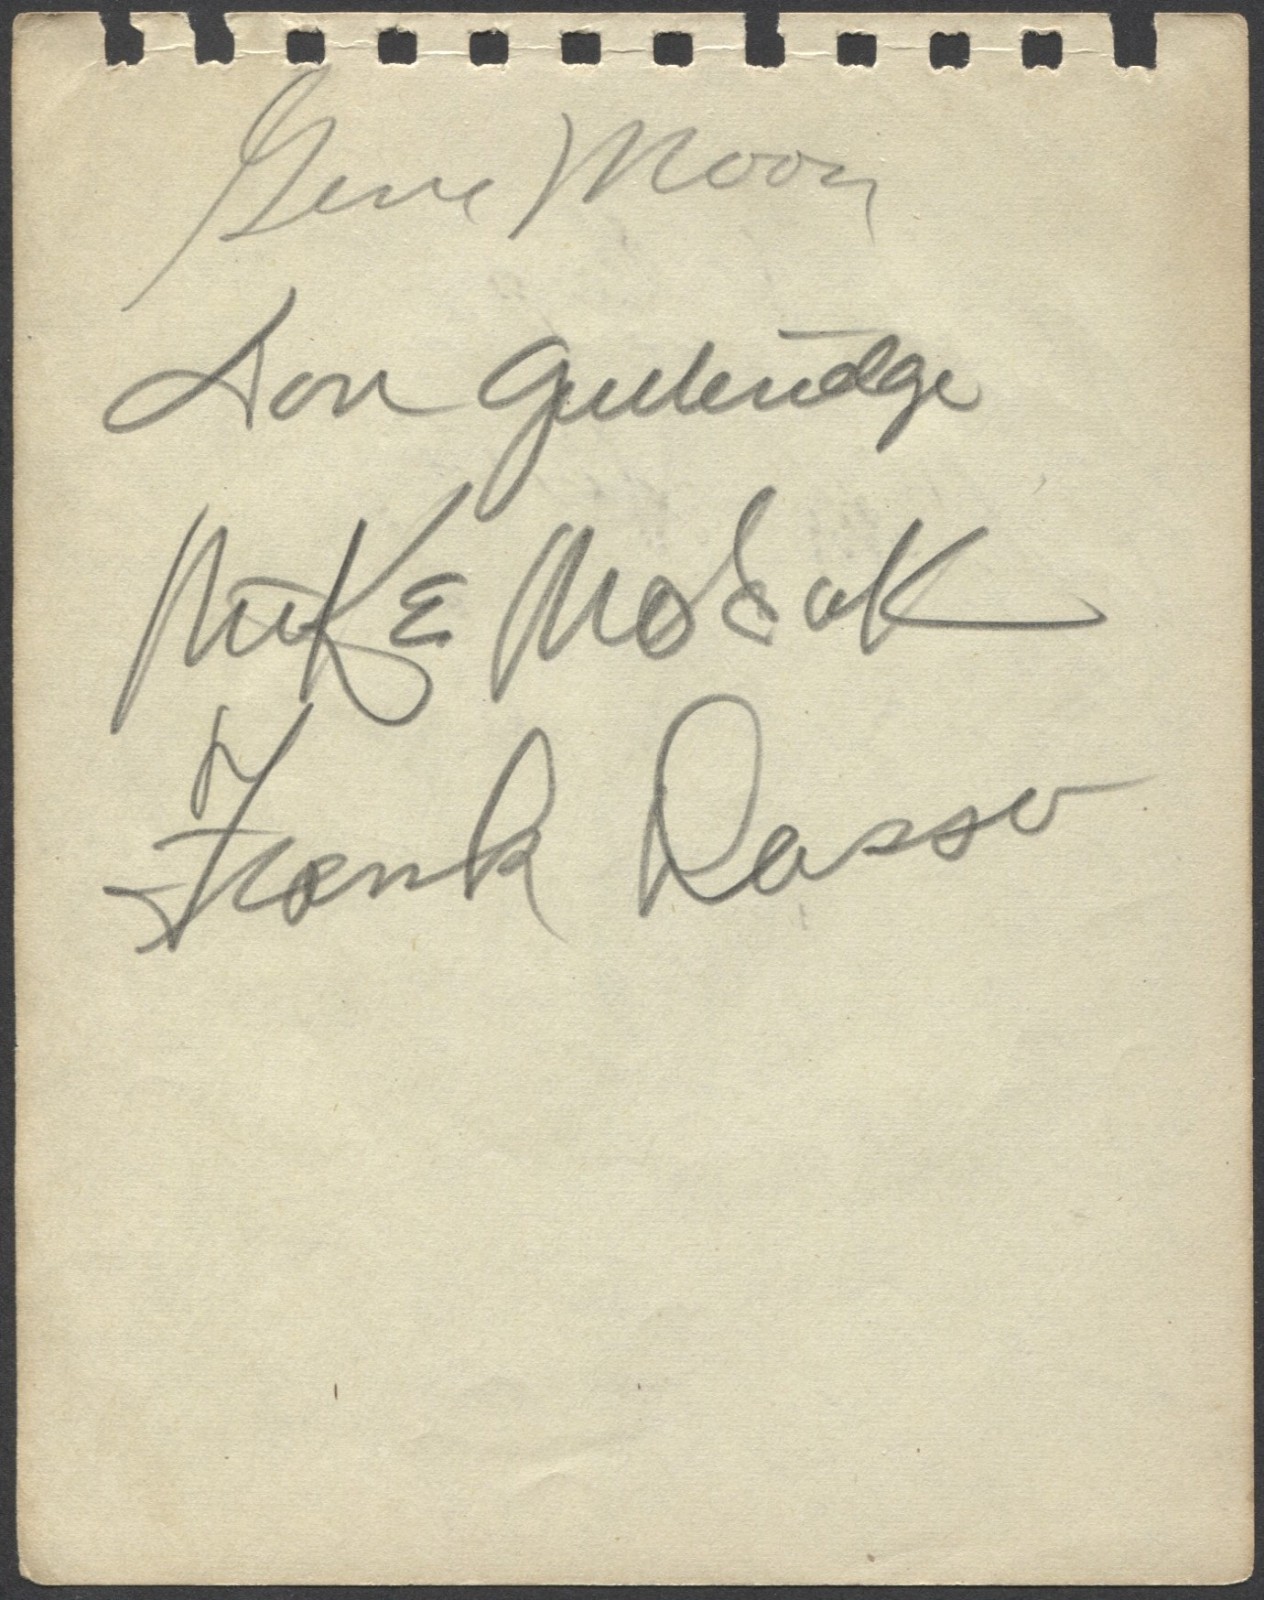 Gene Moon
Don Gutteridge
Mike Modak
Frank Dasso